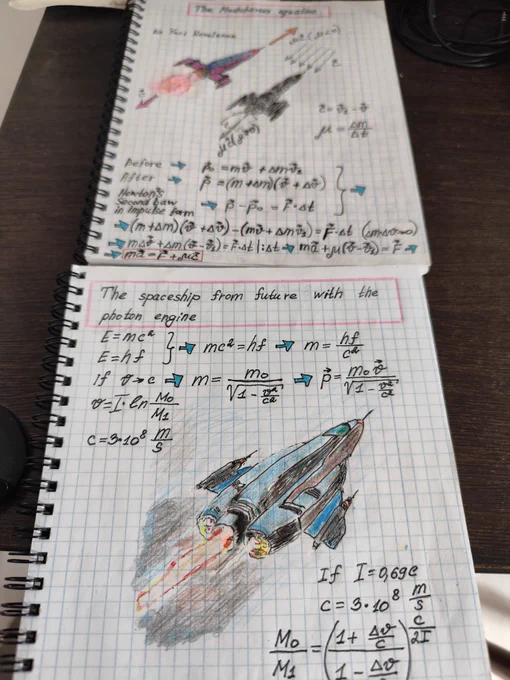 The Meshchersky equation
by Yuri Kovalenok
μc⃗ (μ<0)
c⃗
c⃗
μc⃗ (μ>0)
c⃗ = v⃗₂ - v⃗
μ = Δm/Δt
Before → p⃗₀ = mv⃗ + Δmv⃗₂
After → p⃗ = (m+Δm)(v⃗ + Δv⃗)
Newton's
Second Law
in impulse form → p⃗ - p⃗₀ = F⃗·Δt
→ (m+Δm)(v⃗+Δv⃗) - (mv⃗+Δmv⃗₂) = F⃗·Δt (Δm·Δv→0)
→ mΔv⃗ + Δm(v⃗-v⃗₂) = F⃗·Δt |:Δt → ma⃗ + μ(v⃗-v⃗₂) = F⃗ →
→ ma⃗ = F⃗ + μc⃗
The spaceship from future with the
photon engine
E = mc²
E = hf
} → mc² = hf → m = hf/c²
if v→c → m = m₀/√(1 - v²/c²) → p⃗ = m₀v⃗/√(1 - v²/c²)
v = I·ln M₀/M₁
c = 3·10⁸ m/s
If I = 0,69c
c = 3·10⁸ m/s
M₀/M₁ = ((1 + Δv/c)/(1 - Δv
c/2I